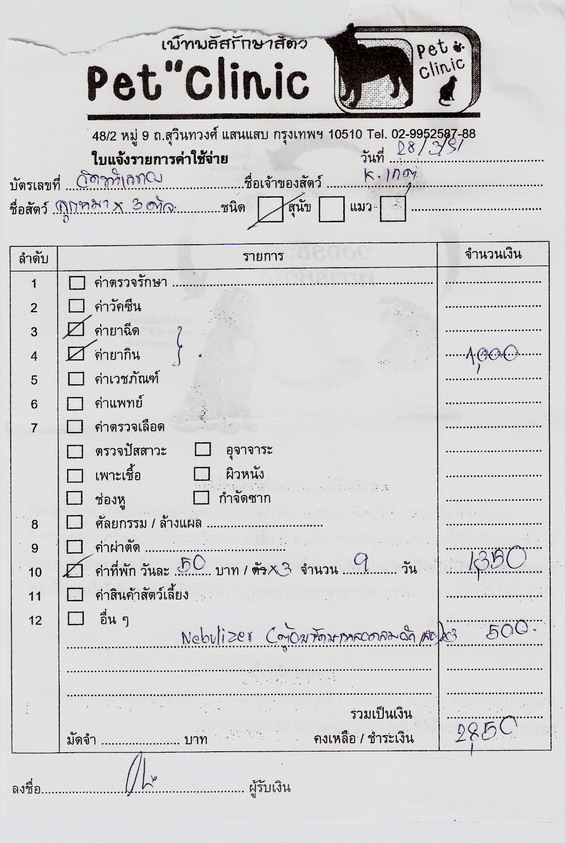 เพ็ทพลัสรักษาสัตว์
Pet Clinic
Pet
Clinic
48/2 หมู่ 9 ถ.สุวินทวงศ์ แสนแสบ กรุงเทพฯ 10510 Tel. 02-9952587-88
ใบแจ้งรายการค่าใช้จ่าย วันที่ 28/3/51
บัตรเลขที่ ชื่อเจ้าของสัตว์ K. เกตุ
ชื่อสัตว์ ลูกหมา x 3 ตัว ชนิด สุนัข แมว
ลำดับ รายการ จำนวนเงิน
1 ค่าตรวจรักษา
2 ค่าวัคซีน
3 ค่ายาฉีด
4 ค่ายากิน 1,000
5 ค่าเวชภัณฑ์
6 ค่าแพทย์
7 ค่าตรวจเลือด
ตรวจปัสสาวะ อุจจาระ
เพาะเชื้อ ผิวหนัง
ช่องหู กำจัดซาก
8 ศัลยกรรม / ล้างแผล
9 ค่าผ่าตัด
10 ค่าที่พัก วันละ 50 บาท / ตัว x3 จำนวน 9 วัน 1,350
11 ค่าสินค้าสัตว์เลี้ยง
12 อื่น ๆ
Nebulizer x3 500.-
รวมเป็นเงิน
มัดจำ บาท คงเหลือ / ชำระเงิน 2,850
ลงชื่อ ผู้รับเงิน